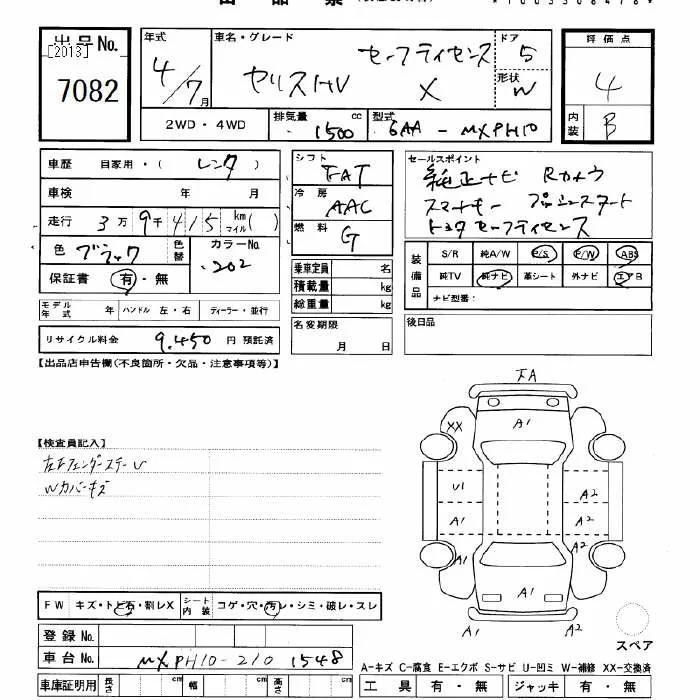 出品No.
[2013]
7082
年式
4/7月
車名・グレード
ヤリスHV
セーフティセンス
X
ドア
5
形状
W
評価点
4
内装
B
2WD・4WD
排気量 1500 cc
型式 6AA - MXPH10
車歴 自家用・( レンタ )
車検 年 月
走行 3万9千415 km マイル( )
色 ブラック
色替
カラーNo. 202
保証書 有・無
モデル年式 年 ハンドル 左・右 ディーラー・並行
リサイクル料金 9,450 円 預託済
シフト FAT
冷房 AAC
燃料 G
乗車定員 名
積載量 kg
総重量 kg
名変期限
月 日
セールスポイント
純正ナビ Rカメラ
スマートキー プッシュスタート
トヨタセーフティセンス
装備品
S/R 純A/W P/S P/W ABS
純TV 純ナビ 革シート 外ナビ エアB
ナビ型番:
後日品
【出品店申告欄(不良箇所・欠品・注意事項等)】
【検査員記入】
Wカバーキズ
FW キズ・トビ石・割レX
シート内装 コゲ・穴・汚レ・シミ・破レ・スレ
登録No.
車台No. MXPH10-2101548
車庫証明用 長さ cm 幅 cm 高さ cm
FA
XX
A1
U1
A2
A1
A2
A1
A2
A1
A1
A2
スペア
A-キズ C-腐食 E-エクボ S-サビ U-凹ミ W-補修 XX-交換済
工具 有・無 ジャッキ 有・無